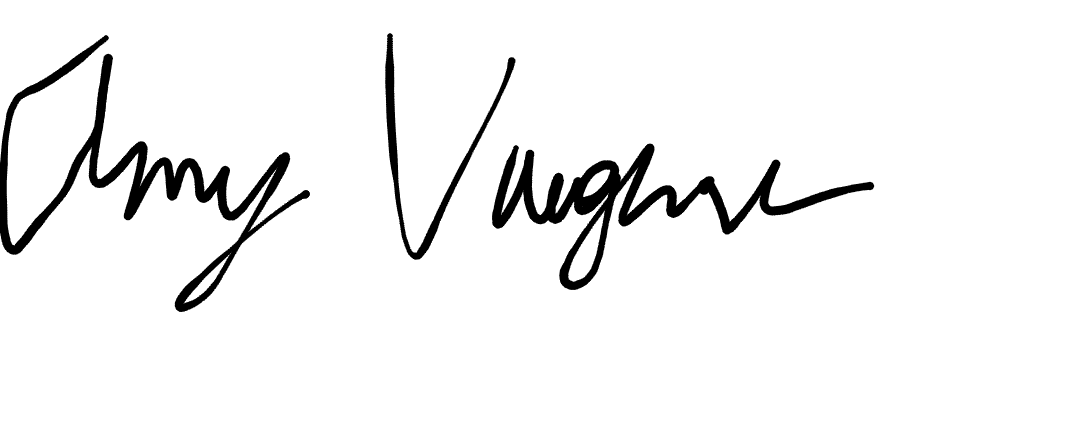 Amy Vaughn